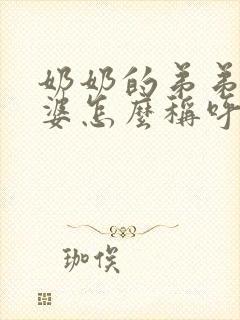 奶奶的弟弟
婆怎麼稱呼
珈俟